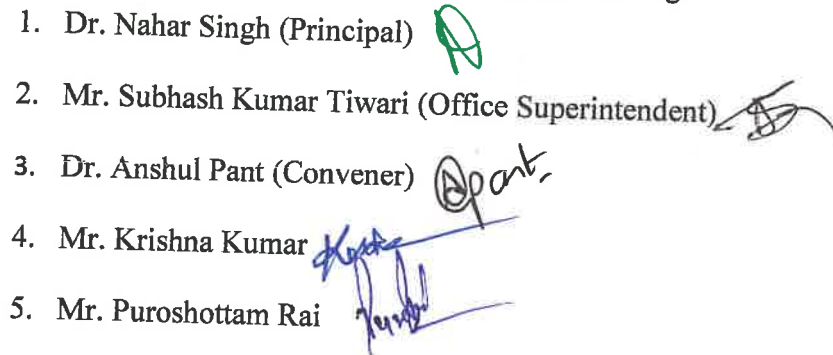 1. Dr. Nahar Singh (Principal)
2. Mr. Subhash Kumar Tiwari (Office Superintendent)
3. Dr. Anshul Pant (Convener) Apant.
4. Mr. Krishna Kumar
5. Mr. Puroshottam Rai